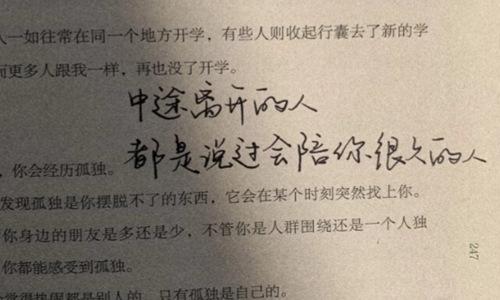 人一如往常在同一个地方开学，有些人则收起行囊去了新的学
而更多人跟我一样，再也没了开学。
中途离开的人
都是说过会陪你很久的人
，你会经历孤独。
发现孤独是你摆脱不了的东西，它会在某个时刻突然找上你。
你身边的朋友是多还是少，不管你是人群围绕还是一个人独
你都能感受到孤独。
247
觉得热闹都是别人的，只有孤独是自己的。